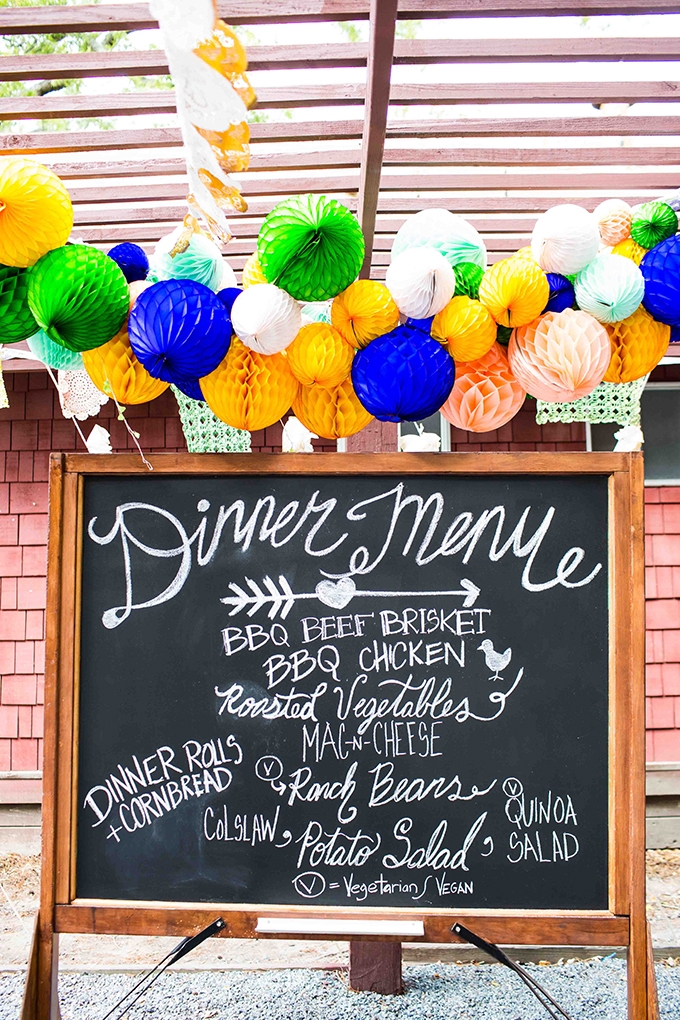 Dinner Menu
BBQ BEEF BRISKET
BBQ CHICKEN
Roasted Vegetables
MAC-N-CHEESE
DINNER ROLLS
+ CORNBREAD
V Ranch Beans
COLSLAW,
Potato Salad,
V QUINOA
SALAD
V = Vegetarian/VEGAN